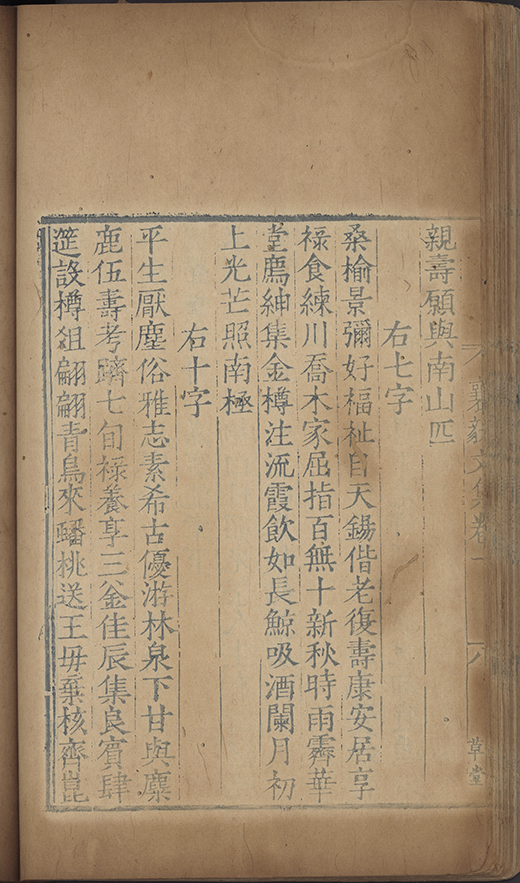 文集卷
八
草堂
親壽願與南山匹
右七字
桑榆景彌好福祉自天錫偕老復壽康安居享
祿食練川喬木家屈指百無十新秋時雨霽華
堂薦紳集金樽注流霞飲如長鯨吸酒闌月初
上光芒照南極
右十字
平生厭塵俗雅志素希古優游林泉下甘與麋
鹿伍壽考躋七旬祿養享三釜佳辰集良賓肆
筵設樽俎翩翩青鳥來蟠桃送王毋棄核齊崑